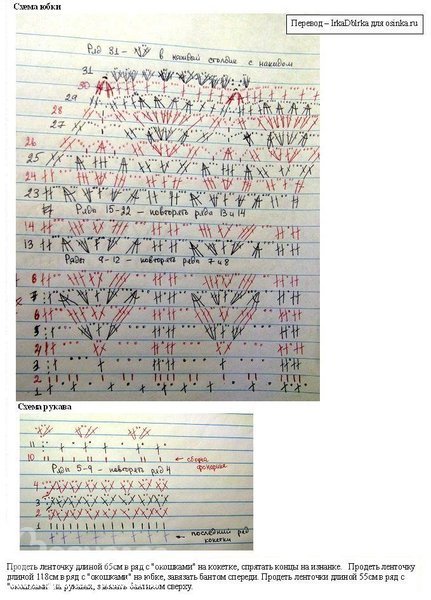 Схема юбки
Перевод – IrkaDbIrka для osinka.ru
Ряд 31 – в каждый столбик с накидом
31
30
29
28
27
26
25
24
23
Ряды 15-22 – повторять ряда 13 и 14
14
13
Ряды 9-12 – повторять ряда 7 и 8
8
7
6
5
4
3
2
1
Схема рукава
11
10 сборка фонарика
Ряды 5-9 – повторять ряд 4
4
3
2
1
последний ряд кокетки
Продеть ленточку длиной 65см в ряд с "окошками" на кокетке, спрятать концы на изнанке. Продеть ленточку
длиной 118см в ряд с "окошками" на юбке, завязать бантом спереди. Продеть ленточки длиной 55см в ряд с
"окошками" на рукавах, завязать бантиком сверху.